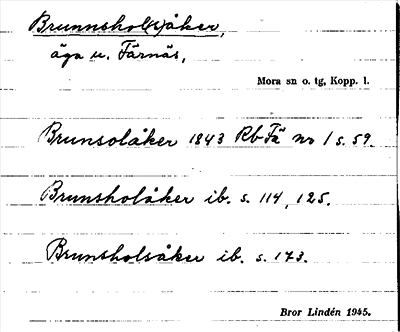 Brunnshol(s)åker,
äga u. Färnäs,
Mora sn o. tg, Kopp. l.
Brunsolåker 1843 Rb Fä no 1 s. 59.
Brunsholåker ib. s. 114, 125.
Brunsholsåker ib. s. 173.
Bror Lindén 1945.